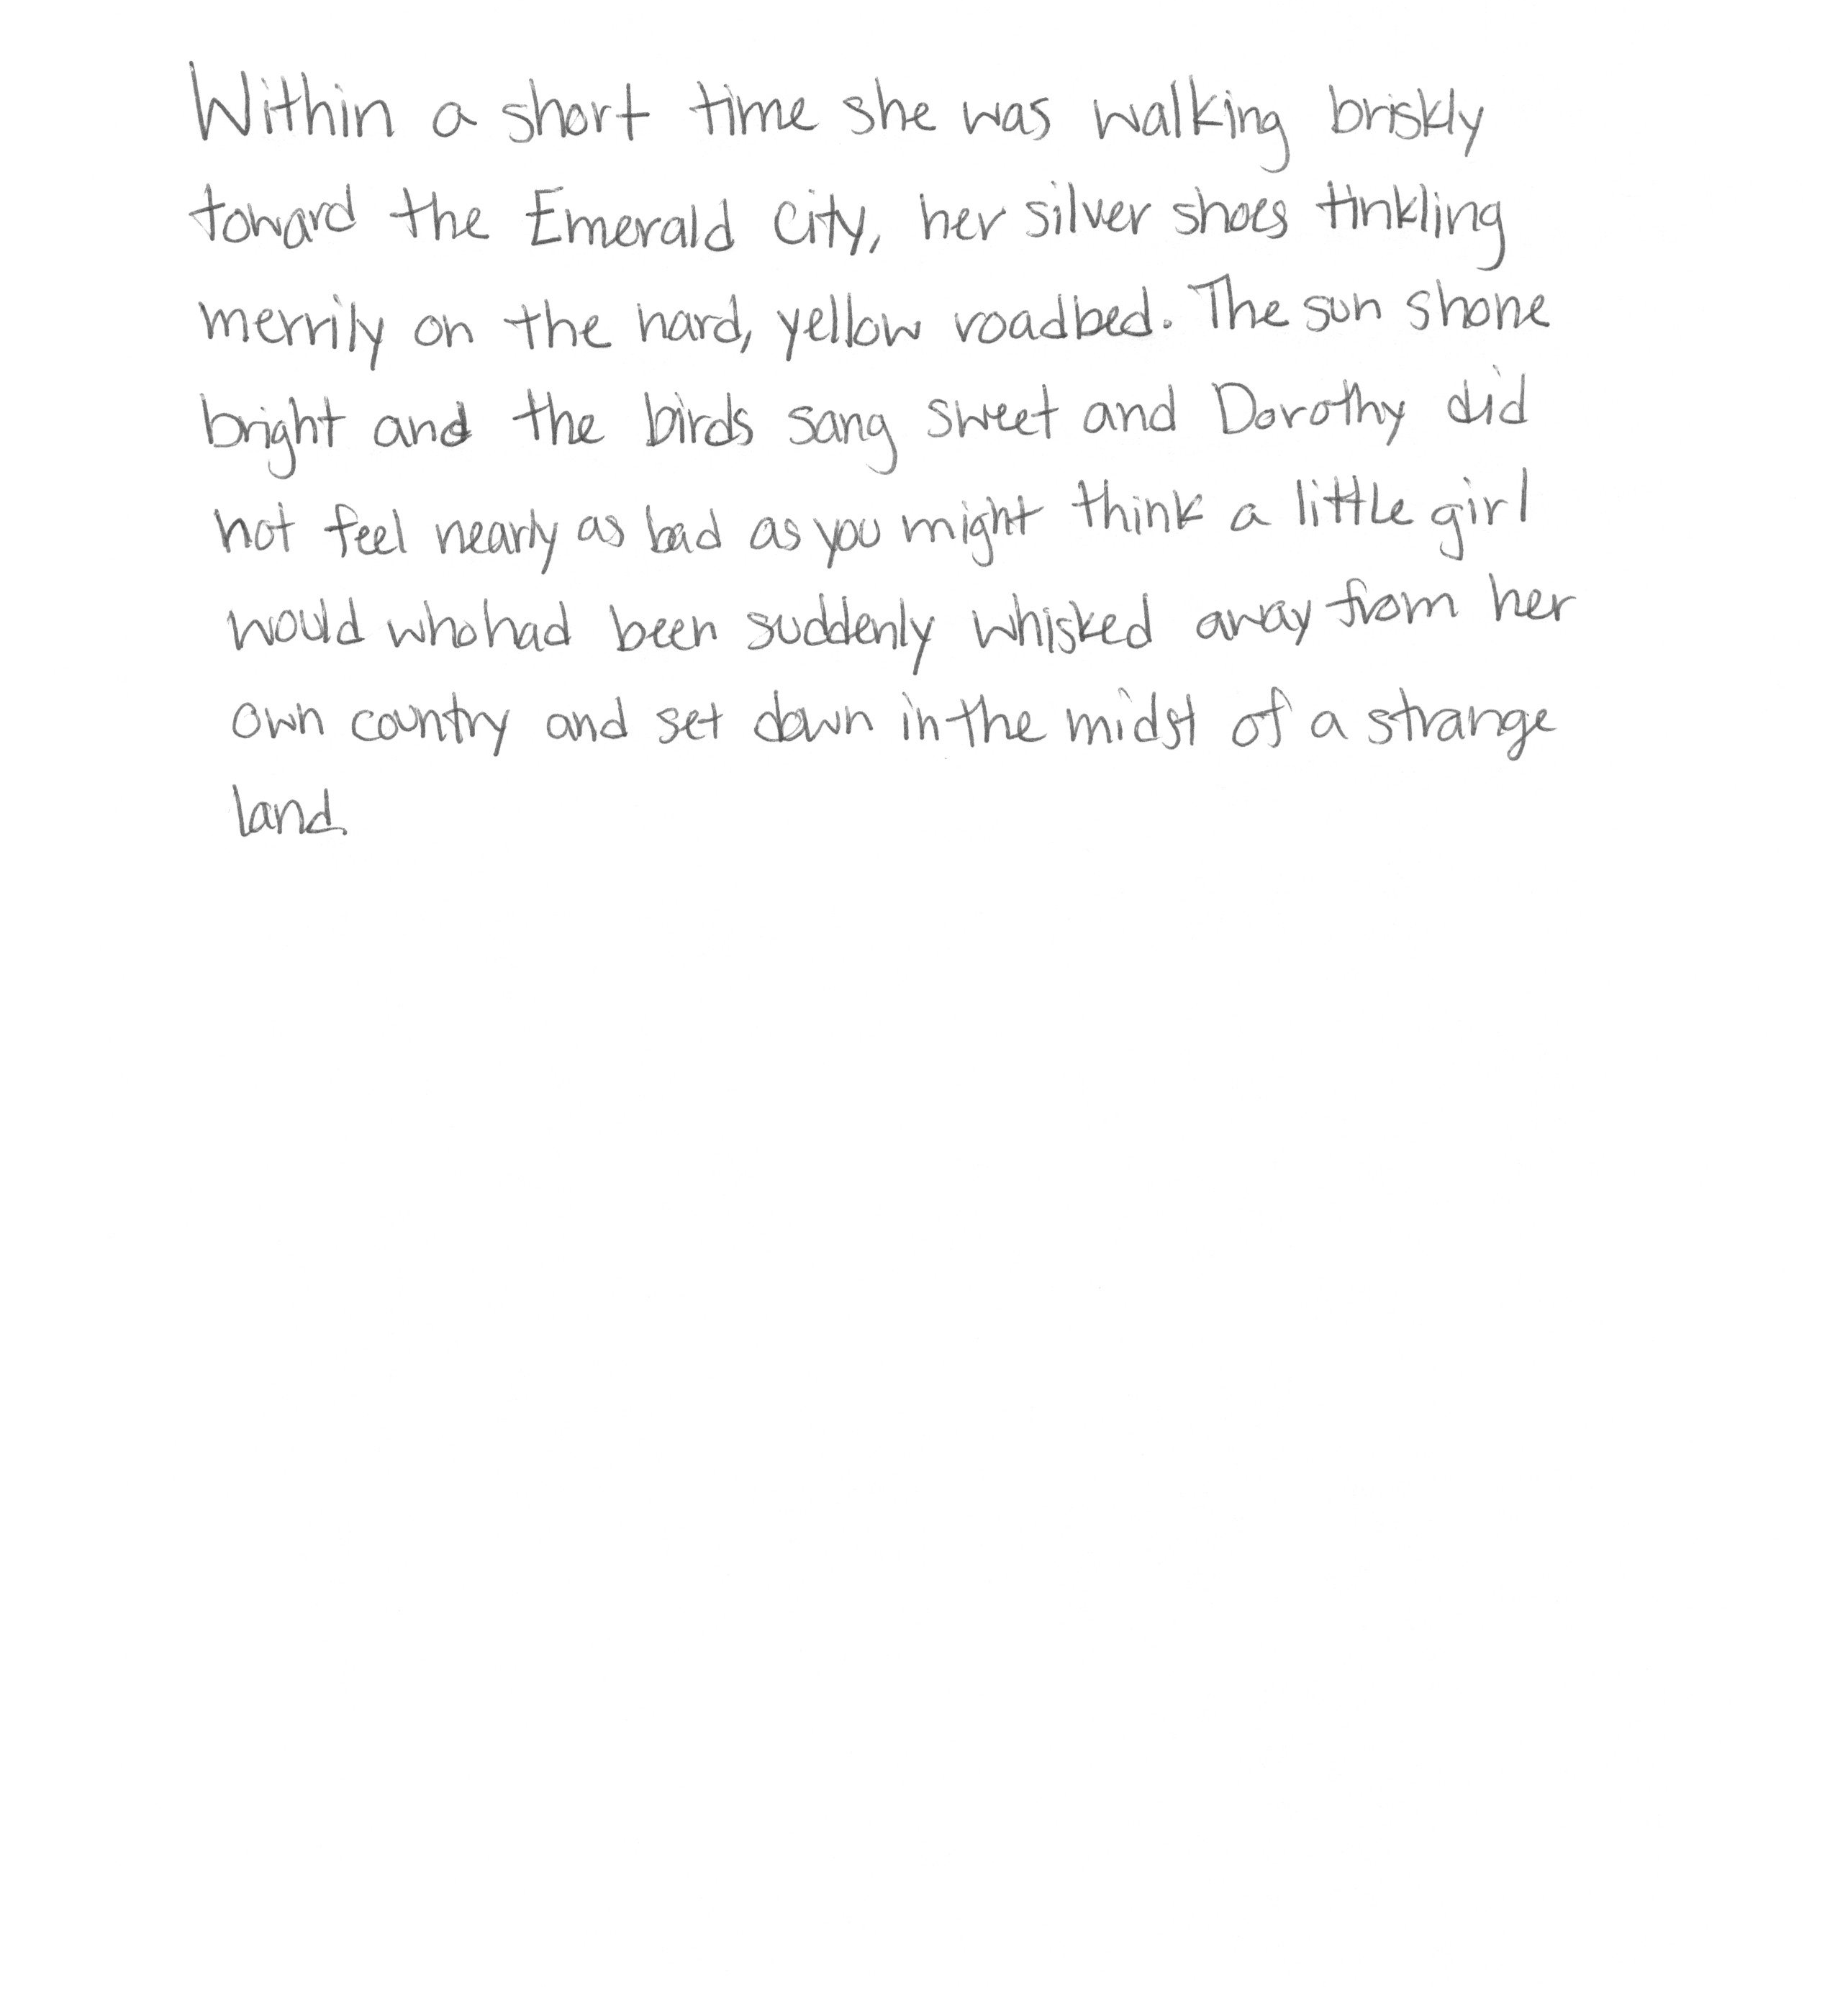 Within a short time she was walking briskly
toward the Emerald City, her silver shoes tinkling
merrily on the hard, yellow roadbed. The sun shone
bright and the birds sang sweet and Dorothy did
not feel nearly as bad as you might think a little girl
would who had been suddenly whisked away from her
own country and set down in the midst of a strange
land.